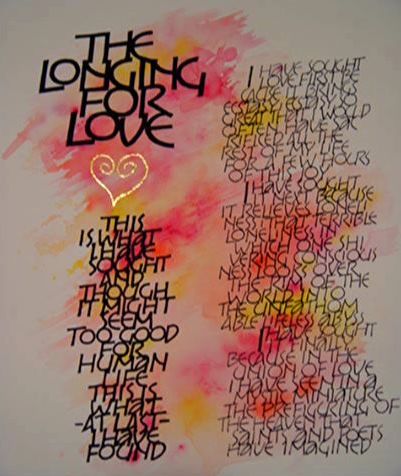 THE
LONGING
FOR
LOVE
THIS
IS WHAT
I HAVE
SOUGHT
AND
THOUGH
IT MIGHT
SEEM
TOO GOOD
FOR
HUMAN
LIFE
THIS IS
WHAT
-AT LAST-
I HAVE
FOUND
I HAVE SOUGHT
LOVE FIRST BE
CAUSE IT BRINGS
ECSTASY ECSTASY SO
GREAT THAT I WOULD
OFTEN HAVE SAC
RIFICED THE
REST OF
A FEW HOURS
OF THIS JOY
I HAVE SOUGHT
IT NEXT BECAUSE
IT RELIEVES LONELI
NESS THAT TERRIBLE
LONELINESS IN
WHICH ONE SHI
VERING CONSCIOUS
NESS LOOKS OVER
THE RIM OF THE
WORLD INTO
THE
ABLE LIFELESS ABYSS
I HAVE SOUGHT
IT FINALLY
BECAUSE IN THE
UNION OF LOVE
I HAVE SEEN IN A
MYSTIC MINIATURE
THE PREFIGURING OF
THE HEAVEN THAT
SAINTS AND POETS
HAVE IMAGINED